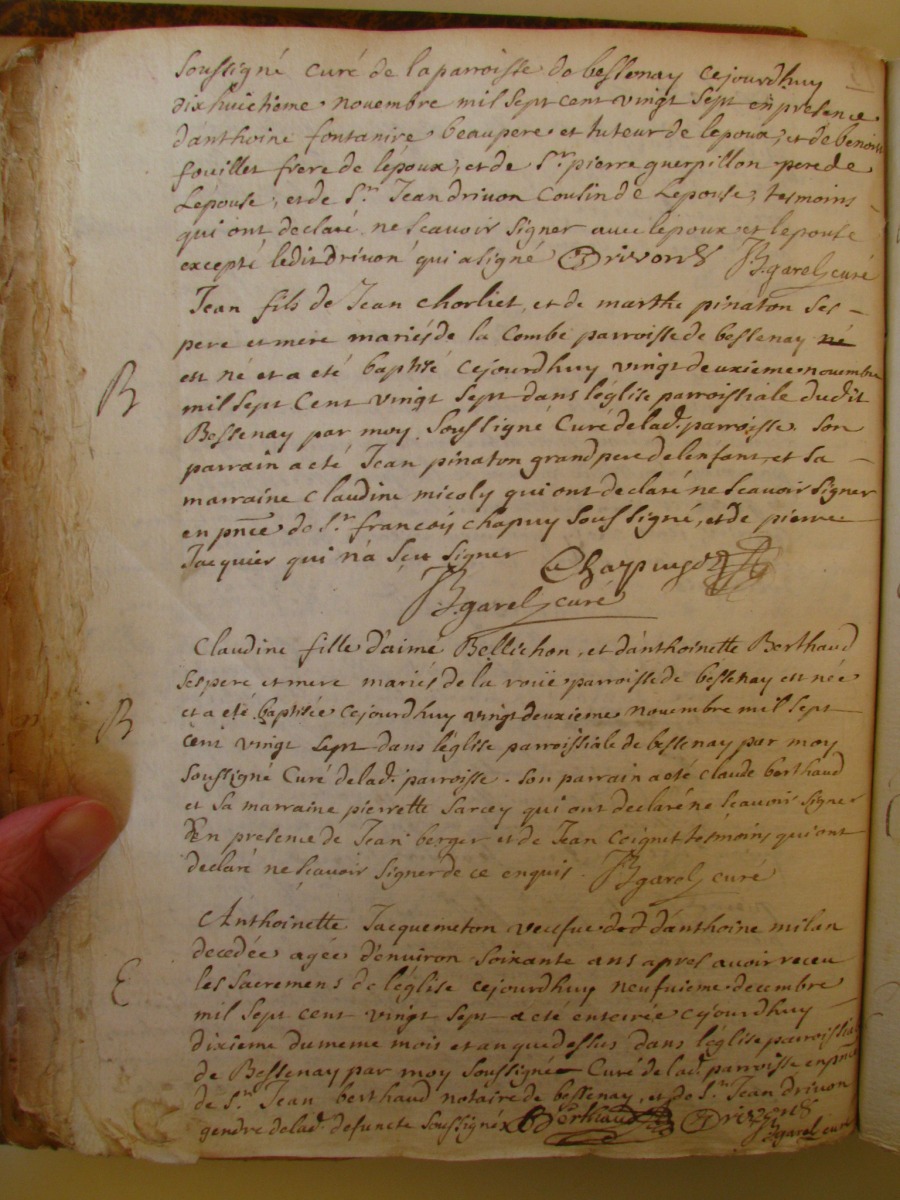 soussigné curé de la parroisse de bessenay cejourdhuy
dixhuitieme novembre mil sept cent vingt sept en presence
d'anthoine fontanire beaupere et tuteur de lepoux, et de benoist
fouillet frere de lépoux, et de Sr pierre guerpillon pere de
Lépouse, et de Sr Jean drivon Cousin de Lepouse, tesmoins
qui ont declaré ne scavoir signer avec lepoux et lepouse
excepté ledit drivon qui a signé Drivon B. garel curé
Jean fils de Jean Chorliet, et de marthe pinaton ses
pere et mere mariés de la Combe parroisse de bessenay né
B est né et a eté baptisé cejourdhuy vingt deuxieme novembre
mil sept Cent vingt sept dans léglise parroissiale dudit
Bessenay par moy soussigné Curé de lad. parroisse. Son
parrain a eté Jean pinaton grand pere de lenfant, et sa
marraine Claudine micoly qui ont declaré ne scavoir signer
en pnce de Sr francois chapuy soussigné, et de pierre
Jacquier qui n'a sçu signer Chapuys
B. garel curé
Claudine fille d'aimé Bellichon, et d'anthoinette Berthaud
ses pere et mere mariés de la roüe parroisse de bessenay est née
B et a eté baptisée cejourdhuy vingt deuxieme novembre mil sept
cent vingt sept dans léglise parroissiale de bessenay par moy
soussigné Curé de lad. parroisse. Son parrain a eté claude berthaud
et sa marraine pierrette Sarcey qui ont declaré ne scavoir signer
En presence de Jean berger et de Jean Coignet tesmoins qui ont
declaré ne scavoir signer de ce enquis. B garel curé
Anthoinette Jacquemeton veufue d'anthoine milan
decedée agée d'environ soixante ans apres avoir receu
E les sacremens de léglise cejourdhuy neufuieme decembre
mil sept cent vingt sept a eté enterrée cejourdhuy
dixieme du meme mois et an que dessus dans léglise parroissiale
de Bessenay par moy soussigné Curé de lad. parroisse en pnce
de Sr Jean berthaud notaire de bessenay, et de Sr Jean drivon
gendre de lad. defuncte soussignés Berthaud Drivon B garel curé